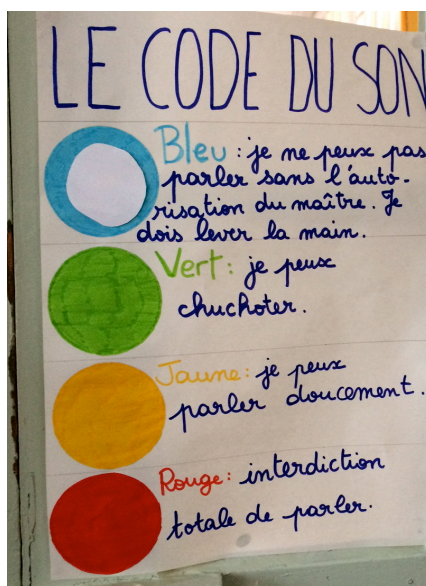 LE CODE DU SON
Bleu : je ne peux pas
parler sans l'auto-
risation du maître. Je
dois lever la main.
Vert : je peux
chuchoter.
Jaune : je peux
parler doucement.
Rouge : interdiction
totale de parler.